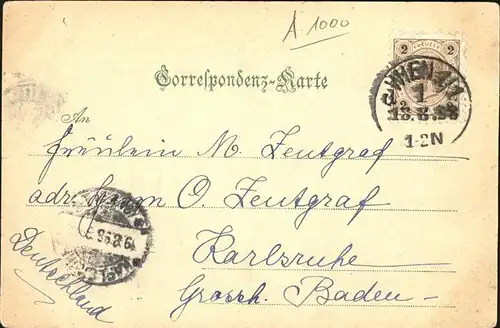 A 1000
KREUZER
2 2
WIEN 4/1
1
13.8.96
1-2N
Correspondenz-Karte
An
Fräulein M. Zentgraf
adr. Herrn O. Zentgraf
Karlsruhe
Grossh. Baden
Deutschland